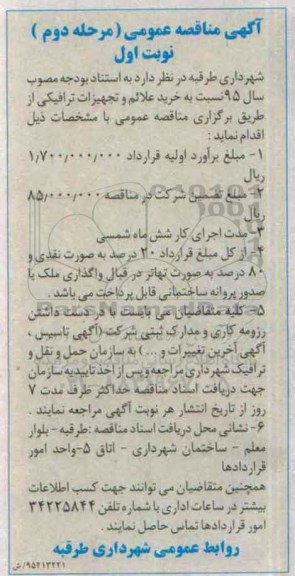 آگهی مناقصه عمومی (مرحله دوم)
نوبت اول
شهرداری طرقبه در نظر دارد به استناد بودجه مصوب
سال ۹۵ نسبت به خرید علائم و تجهیزات ترافیکی از
طریق برگزاری مناقصه عمومی با مشخصات ذیل
اقدام نماید :
۱- مبلغ برآورد اولیه قرارداد ۱/۷۰۰/۰۰۰/۰۰۰
ریال
۲- مبلغ تضمین شرکت در مناقصه ۸۵/۰۰۰/۰۰۰
ریال
۳- مدت اجرای کار شش ماه شمسی
۴- از کل مبلغ قرارداد ۲۰ درصد به صورت نقدی و
۸۰ درصد به صورت تهاتر در قبال واگذاری ملک یا
صدور پروانه ساختمانی قابل پرداخت می باشد .
۵- کلیه متقاضیان می بایست با در دست داشتن
رزومه کاری و مدارک ثبتی شرکت (آگهی تاسیس ،
آگهی آخرین تغییرات و ...) به سازمان حمل و نقل و
ترافیک شهرداری مراجعه و پس از اخذ تاییدیه سازمان
جهت دریافت اسناد مناقصه حداکثر ظرف مدت ۷
روز از تاریخ انتشار هر نوبت آگهی مراجعه نمایند .
۶- نشانی محل دریافت اسناد مناقصه :طرقبه - بلوار
معلم - ساختمان شهرداری - اتاق ۵-واحد امور
قراردادها
همچنین متقاضیان می توانند جهت کسب اطلاعات
بیشتر در ساعات اداری با شماره تلفن ۳۴۲۲۵۸۴۴
امور قراردادها تماس حاصل نمایند .
روابط عمومی شهرداری طرقبه
۹۵۲۱۲۲۲۱/ش